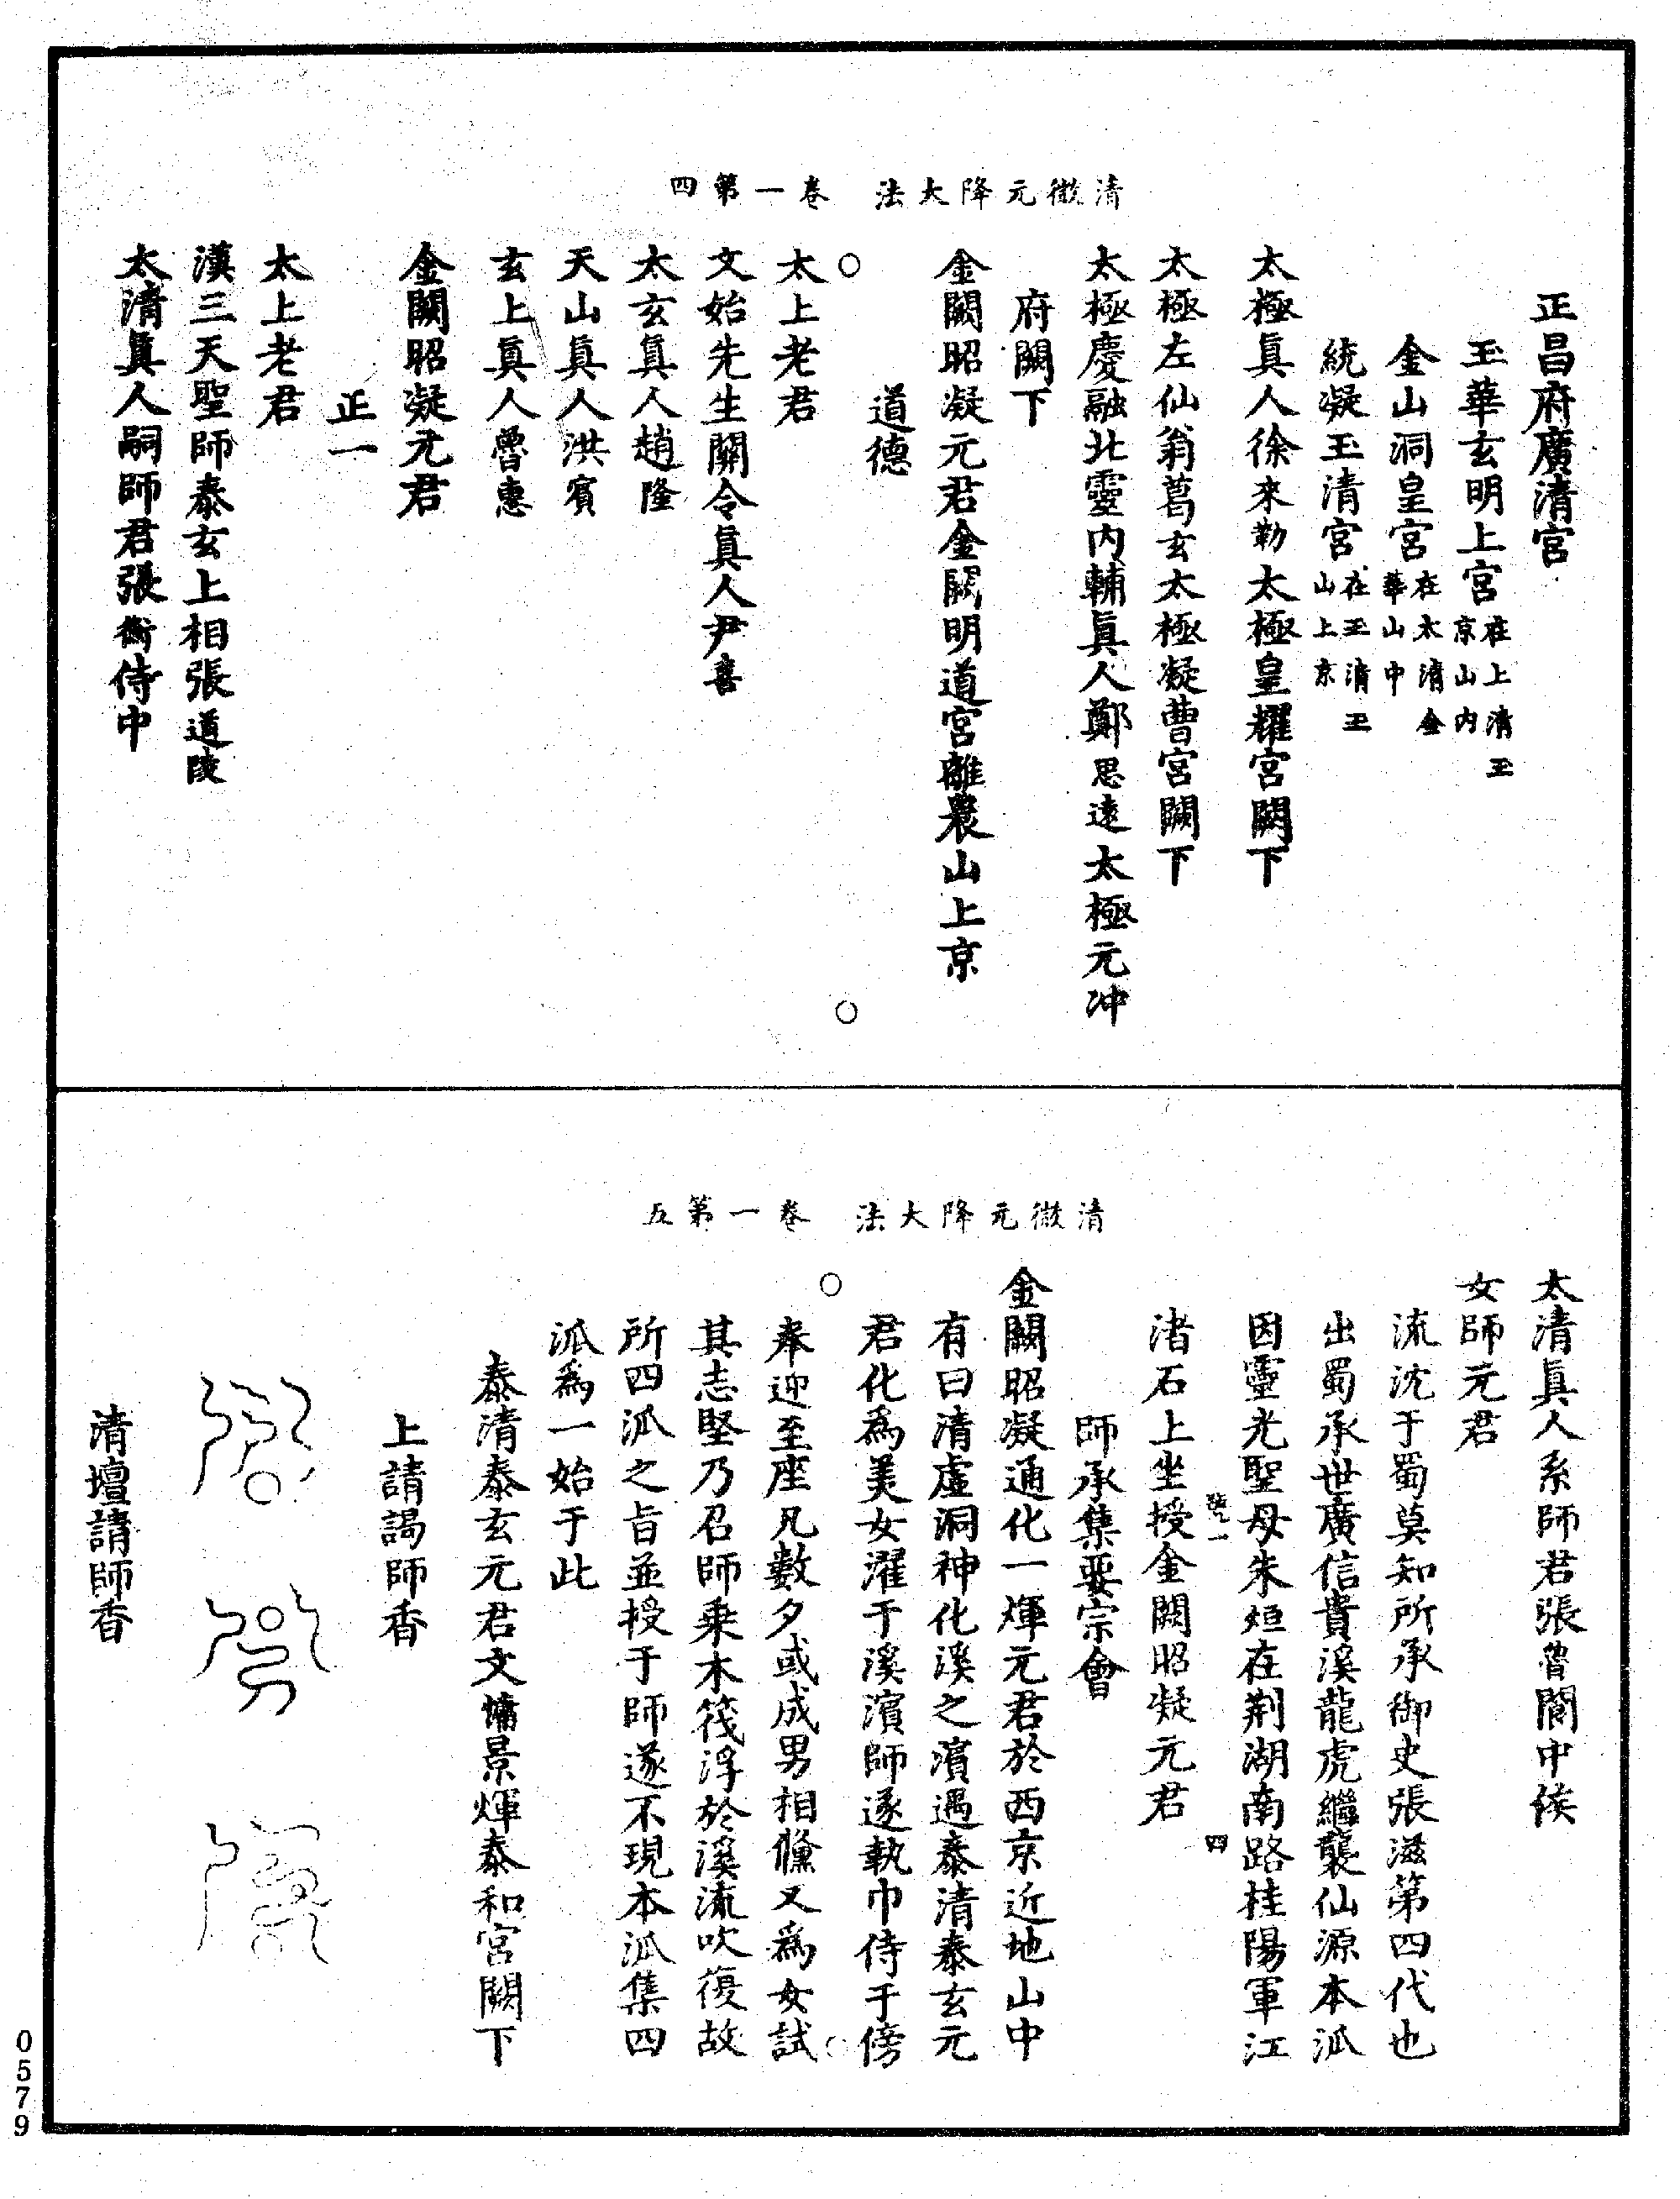 清微元降大法　卷一第四
正昌府廣清宮
玉華玄明上宮在上清玉京山内
金山洞皇宮在太清金華山中
統凝玉清宮在玉清玉山上京
太極眞人徐來勒太極皇耀宮闕下
太極左仙翁葛玄太極凝曹宮闕下
太極慶融北靈内輔眞人鄭思遠太極元冲
府闕下
金闕昭凝元君金闕明道宮離農山上京
道德
太上老君
文始先生關令眞人尹喜
太玄眞人趙隆
天山眞人洪賓
玄上眞人魯惠
金闕昭凝元君
正一
太上老君
漢三天聖師泰玄上相張道陵
太清眞人嗣師君張衡侍中
清微元降大法　卷一第五
太清眞人系師君張魯閬中侯
女師元君
流沈于蜀莫知所承御史張滋第四代也
出蜀承世廣信貴溪龍虎繼襲仙源本泒
因靈光聖母朱烜在荆湖南路桂陽軍江
渚石上坐授金闕昭凝元君
四
師承集要宗會
金闕昭凝通化一煇元君於西京近地山中
有曰清虛洞神化溪之濱遇泰清泰玄元
君化爲美女濯于溪濱師遂執巾侍于傍
奉迎至座凡數夕或成男相儵又爲女試
其志堅乃召師乘木筏浮於溪流吹復故
所四泒之旨並授于師遂不現本泒集四
泒爲一始于此
泰清泰玄元君文慵景煇泰和宮闕下
上請謁師香
清壇請師香
0579